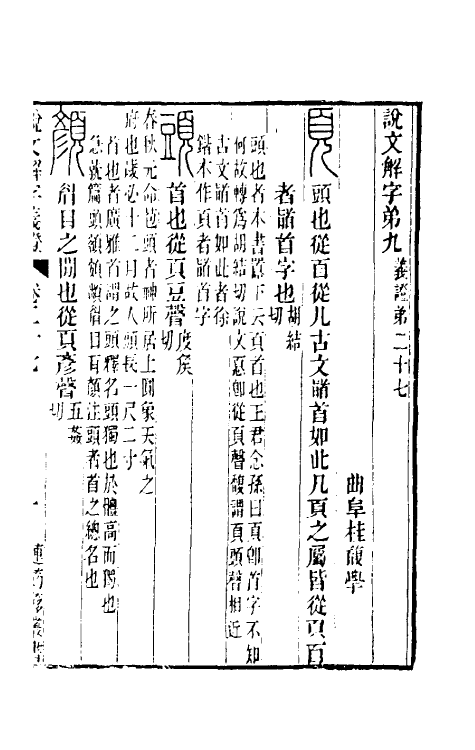 說文解字弟九 義證弟二十七
曲阜桂馥學
頁 頭也從𦣻從儿古文䭫首如此凡頁之屬皆從頁𦣻
者䭫首字也 胡結切
頭也者本書𩠐下云頁首也王君念孫曰頁卽首字不知
何故轉爲胡結切說文𢝊卽從頁聲馥謂頁頭聲相近
古文䭫首如此者徐
鍇本作頁者䭫首字
頭 首也從頁豆聲 度侯切
春秋元命苞頭者神所居上圓象天氣之
府也歲必十二月故人頭長一尺二寸
首也者廣雅首謂之頭釋名頭獨也於體高而獨也
急就篇頭頟頞䪼眉目耳顏注頭者首之總名也
顏 眉目之閒也從頁彥聲 五姦切
說文解字義證 卷二十七 一 連筠簃叢書